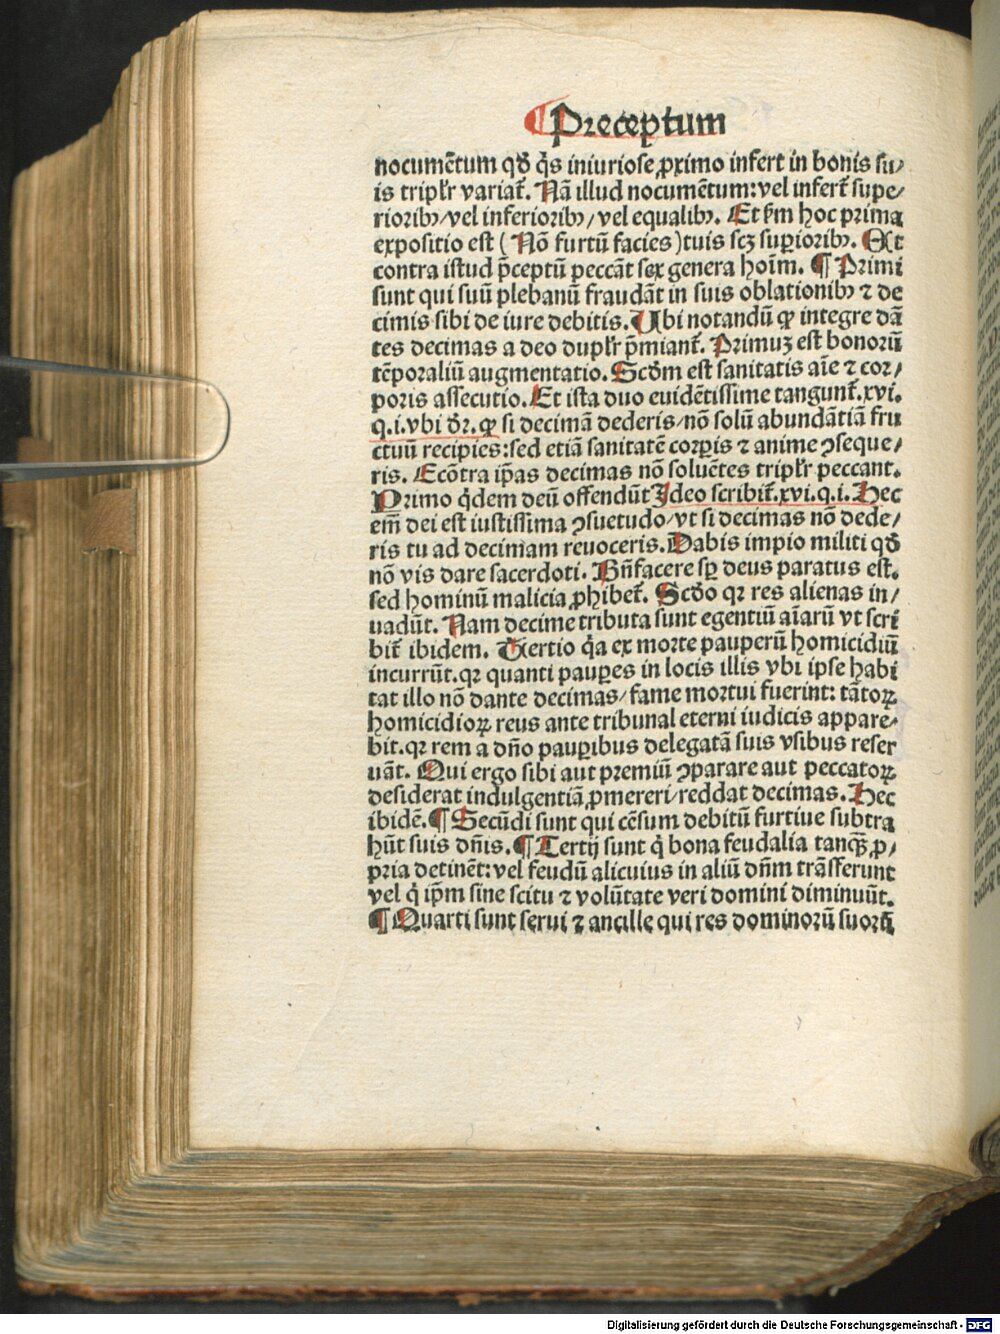 ¶Preceptum
nocumētum qď q̇s iniuriose ꝓximo infert in bonis su⸗
is triplr̄ variat᷑. Nā illud nocumētum: vel infert᷑ supe⸗
rioribꝰ/ vel inferioribꝰ/ vel equalibꝰ. Et ẜm hoc prima
expositio est (Nō furtū facies) tuis scꝫ suꝑioribꝰ. Et
contra istud p̄ceptū peccāt sex genera hoīm. ¶ Primi
sunt qui suū plebanū fraudāt in suis oblationibꝰ ⁊ de
cimis sibi de iure debitis. Ubi notandū ꝙ integre dā
tes decimas a deo duplr̄ p̄miant᷑. Primuꝫ est bonorū
tēporaliū augmentatio. Scďm est sanitatis aīe ⁊ cor⸗
poris assecutio. Et ista duo euidētissime tangunt᷑. xvi.
q. i. vbi dr̄. ꝙ si decimā dederis/ nō solū abundātiā fru
ctuū recipies: sed etiā sanitatē corꝑis ⁊ anime ꝯseque⸗
ris. Ecōtra ip̄as decimas nō soluētes triplr̄ peccant.
Primo q̇dem deū offendūt Ideo scribit᷑. xvi. q. i. Hec
em̄ dei est iustissima ꝯsuetudo/ vt si decimas nō dede⸗
ris tu ad decimam reuoceris. Dabis impio militi qď
nō vis dare sacerdoti. Bn̄facere sꝑ deus paratus est.
sed hominū malicia ꝓhibet᷑. Scďo qꝛ res alienas in⸗
uadūt. Nam decime tributa sunt egentiū aīarū vt scri
bit᷑ ibidem. Tertio q̇a ex morte pauperū homicidiū
incurrūt. qꝛ quanti pauꝑes in locis illis vbi ipse habi
tat illo nō dante decimas/ fame mortui fuerint: tātoꝝ
homicidioꝝ reus ante tribunal eterni iudicis appare⸗
bit. qꝛ rem a dn̄o pauꝑibus delegatā suis vsibus reser
uāt. Qui ergo sibi aut premiū ꝯparare aut peccatoꝝ
desiderat indulgentiā ꝓmereri/ reddat decimas. Hec
ibidē. ¶ Secūdi sunt qui cēsum debitū furtiue subtra
hūt suis dn̄is. ¶ Tertij sunt q̇ bona feudalia tanqꝫ̄ ꝓ⸗
pria detinēt: vel feudū alicuius in aliū dn̄m trāsferunt
vel q̇ ip̄m sine scitu ⁊ volūtate veri domini diminuūt.
¶ Quarti sunt serui ⁊ ancille qui res dominorū suorū
Digitalisierung gefördert durch die Deutsche Forschungsgemeinschaft - DFG